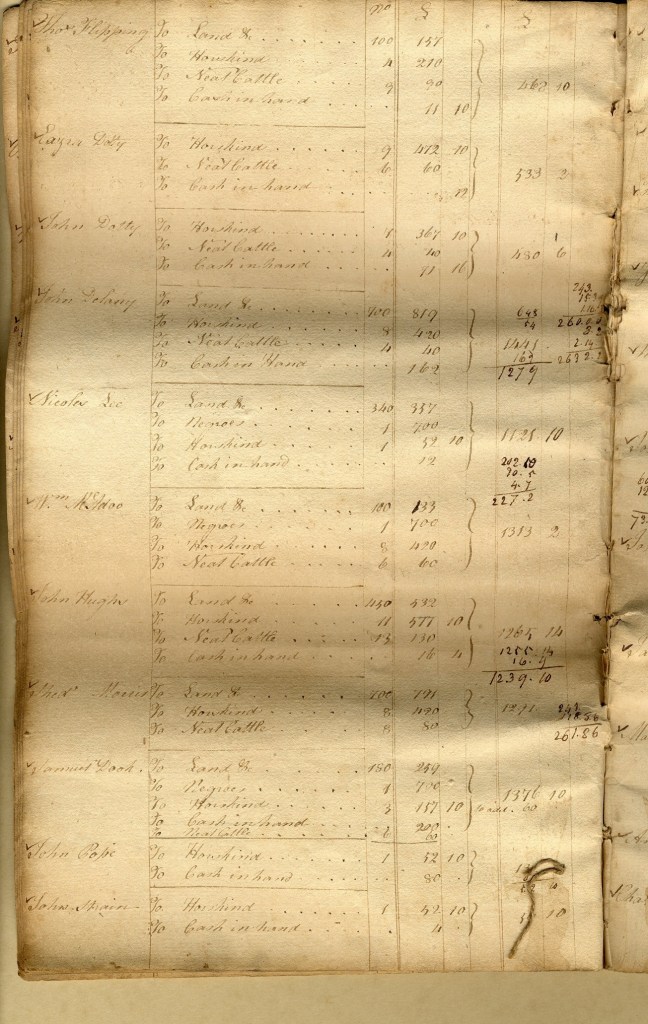 No £ £
Thos Flipping To Land &c 100 157
To Horskind 4 210
To Neat Cattle 9 90 468 10
To Cash in hand 11 10
Ezra Dotty To Horskind 9 472 10
To Neat Cattle 6 60 533 2
To Cash in hand 12
John Dotty To Horskind 1 367 10
To Neat Cattle 4 40 480 6
To Cash in hand 71 16
243
John Delany To Land &c 819 643
To Horskind 8 420 54
To Neat Cattle 4 40 1441
To Cash in Hand 162 162
1279
Nicoles Lee To Land &c 340 357
To Negroes 1 700
To Horskind 1 52 10 1121 10
To Cash in hand 12 202 10
4.7
227.2
Wm McAdoo To Land &c 100 133
To Negroes 1 700 1313 2
To Horskind 8 420
To Neat Cattle 6 60
John Hughs To Land &c 450 532
To Horskind 11 577 10
To Neat Cattle 13 130 1265 14
To Cash in hand 16 4 1255.14
16.4
1239.10
Morris To Land &c 791
To Horskind 8 420 1291 243
To Neat Cattle 8 80 18.86
261.86
Samuel To Land &c 180 259
To Negroes 1 700 1376 10
To Horskind 3 157 10 to add. 60
To Cash in hand 200
To Neat Cattle 6 60
John Pope To Horskind 1 52 10
To Cash in hand 80
John Strain To Horskind 1 52 10 10
To Cash in hand 4